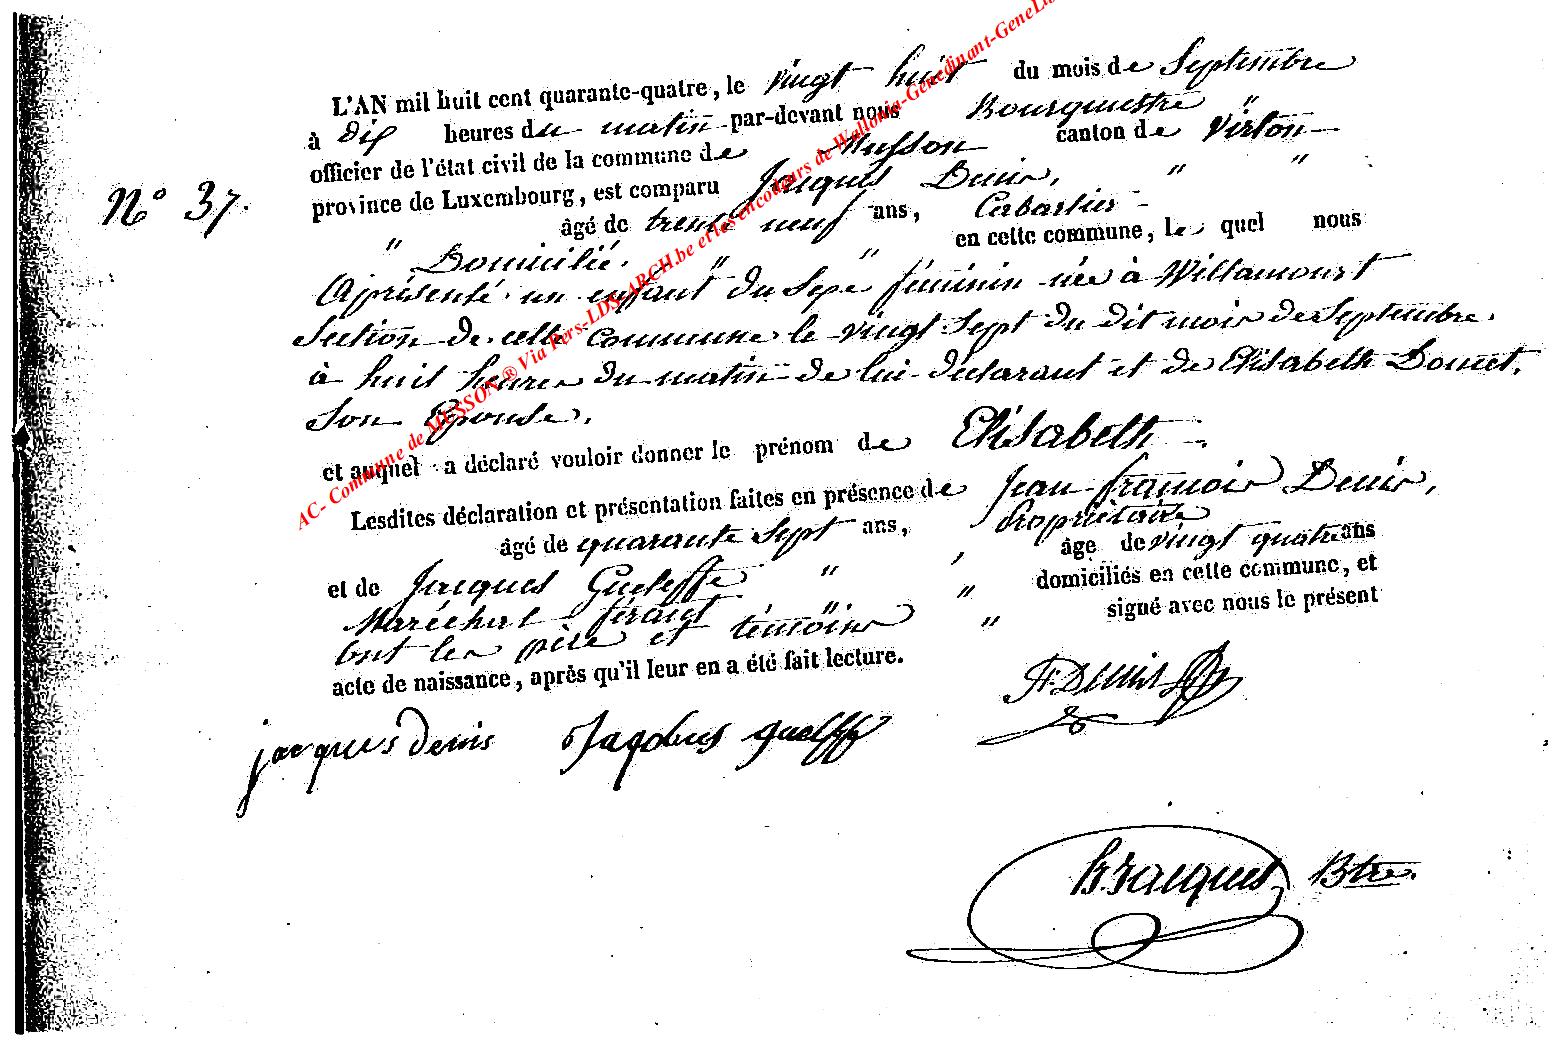 L'AN mil huit cent quarante-quatre, le vingt huit du mois de Septembre
à Dix heures du matin par-devant nous Bourguestre "
officier de l'état civil de la commune de Musson canton de Virton
N° 37.
province de Luxembourg, est comparu Jacques Denis, " "
âgé de trente neuf ans, Cabartier
" Domicilié. " " en cette commune, le quel nous
A présenté un enfant du Sexe féminin née à Willamourt
Section de cette Commune le vingt Sept du dit mois de Septembre.
à huit heures du matin de lui déclarant et de Elisabeth Doucet,
Son Epouse.
et auquel a déclaré vouloir donner le prénom de Elisabeth
Lesdites déclaration et présentation faites en présence de Jean francois Denis,
âgé de quarante Sept ans, Propriétaire
et de Jacques Guelffe " , âge de vingt quatre ans
Maréchal ferant " domiciliés en cette commune, et
Ont les père et témoins " signé avec nous le présent
acte de naissance, après qu'il leur en a été fait lecture.
jacques denis Jacobus guelffe Denis
Btre.
AC- Commune de MUSSON ® Via Pers-LDS-ARCH.be et les encodeurs de Wallonia-Genedinant-GeneLux